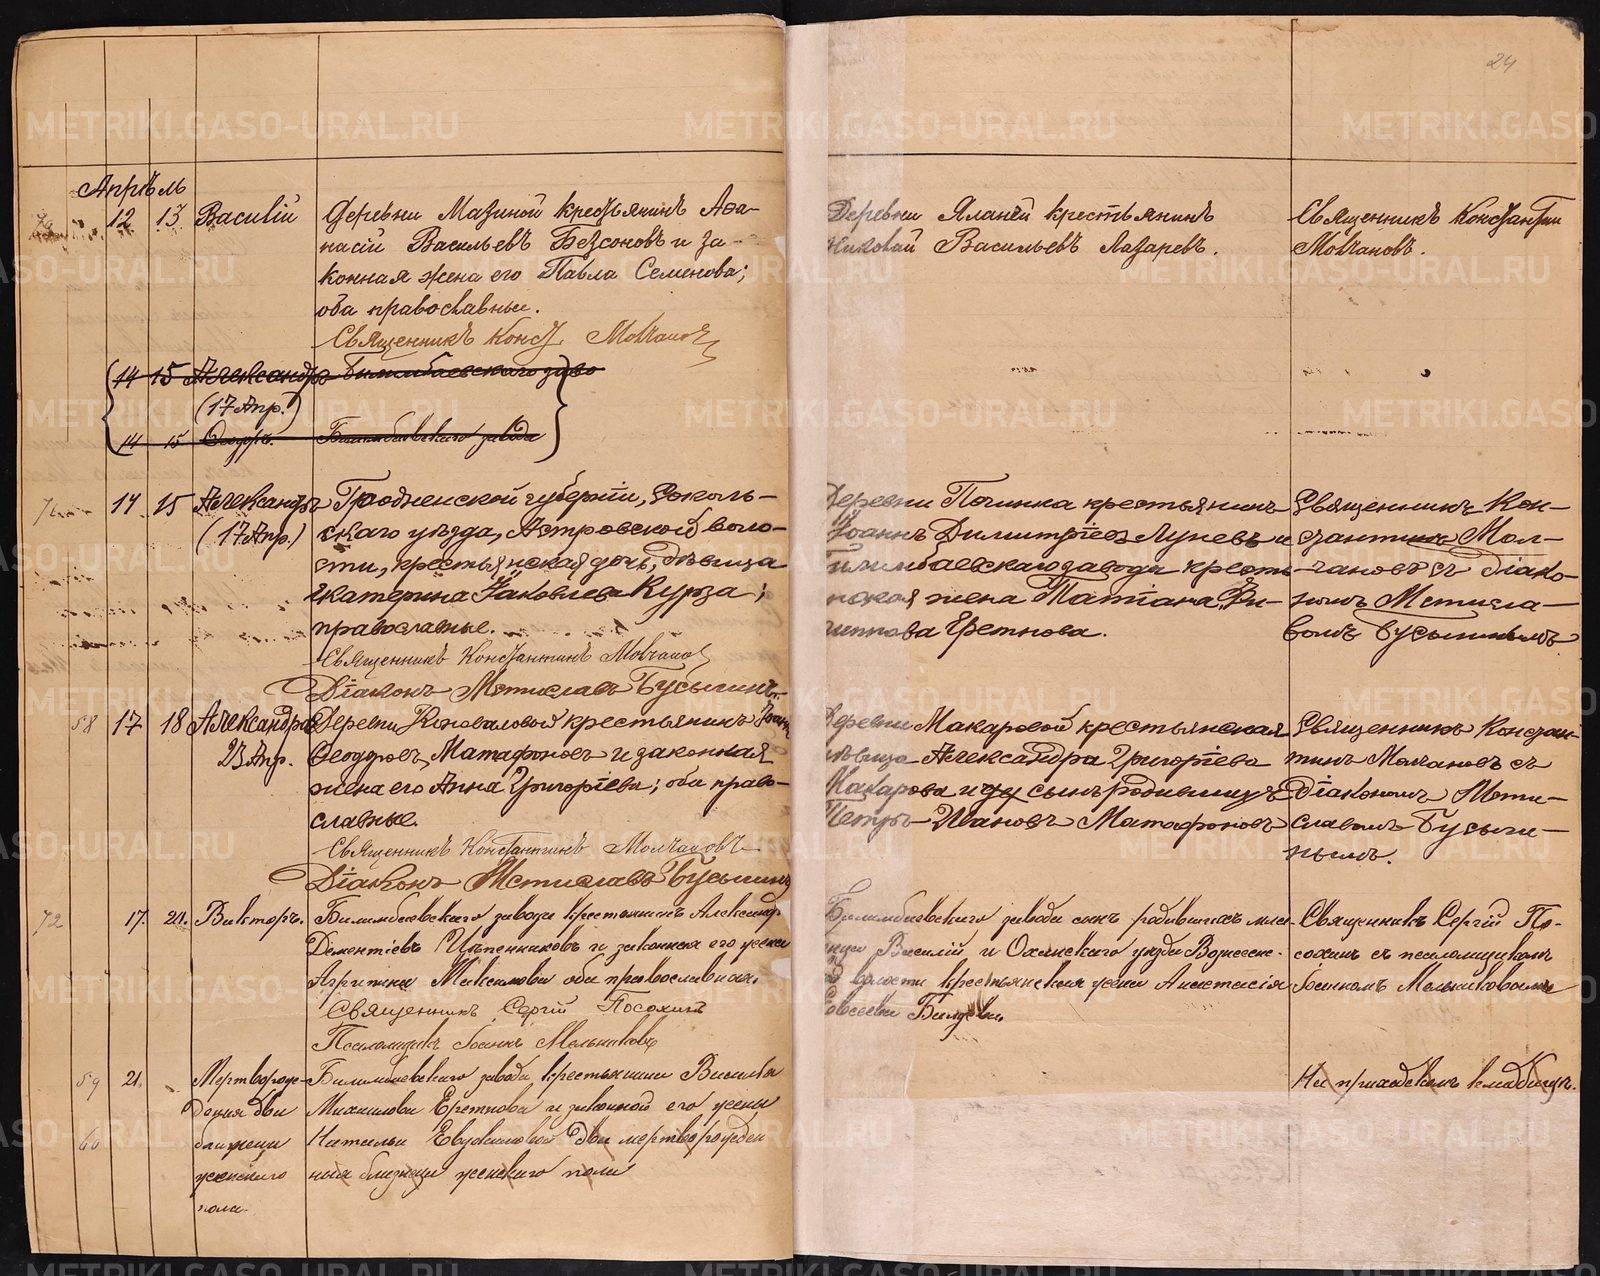 24
Апрѣль
70 12 13 Василій
Деревни Мазиной крестьянинъ Аѳа-
насій Васильевъ Безсоновъ и за-
конная жена его Павла Семенова;
оба православные.
Священникъ Конст. Молчановъ
Деревни Яланей крестьянинъ
Николай Васильевъ Лазаревъ.
Священникъ Константин
Молчановъ.
14 15 Александръ Билимбаевскаго заво
(17 Апр.)
14 15 Ѳеодоръ. Билимбаевскаго завода
71 14 15 Александръ
(17 Апр.)
Гродненской губерніи, Соколь-
скаго уѣзда, Островской воло-
сти, крестьянская дочь, дѣвица
Екатерина Яковлева Курза;
православные.
Священникъ Константинъ Молчановъ
Діаконъ Мстиславъ Бусыгинъ
Деревни Починка крестьянинъ
Іоаннъ Димитріевъ Луневъ и
Билимбаевскаго завода кресть-
янская жена Татіана Фи-
липпова Еретнова.
Священникъ Кон-
стантинъ Мол-
чановъ съ діако-
номъ Мстисла-
вомъ Бусыгинымъ
58 17 18 Александра
23 Апр.
Деревни Коноваловой крестьянинъ Іоаннъ
Ѳеодоровъ Матафоновъ и законная
жена его Анна Григоріева; оба право-
славные.
Священникъ Константинъ Молчановъ
Діаконъ Мстиславъ Бусыгинъ
Деревни Макаровой крестьянская
дѣвица Александра Григоріева
Макарова и сынъ родившихъ
Петръ Ивановъ Матафоновъ
Священникъ Констан-
тинъ Молчановъ съ
діакономъ Мсти-
славомъ Бусыги-
нымъ.
72 17. 21. Викторъ.
Билимбаевскаго завода крестьянинъ Александръ
Дементіевъ Цѣпенниковъ и законная его жена
Агрипина Максимова оба православные.
Священникъ Сергій Посохинъ
Псаломщикъ Іоаннъ Мельниковъ
Билимбаевскаго завода сынъ
Василій и Оханскаго уѣзда Вознесенс-
кой волости крестьянская жена Анастасія
Священникъ Сергій По-
сохинъ съ псаломщикомъ
Іоанномъ Мельниковымъ
59 21. Мертворож-
денія два
60 близнеца
женскаго
пола.
Билимбаевскаго завода крестьянина Василія
Михаилова Еретнова и законной его жены
Наталіи Евдокимовой два мертворожден
ныя близнеца женскаго пола
На приходскомъ кладбищѣ.
METRIKI.GASO-URAL.RU